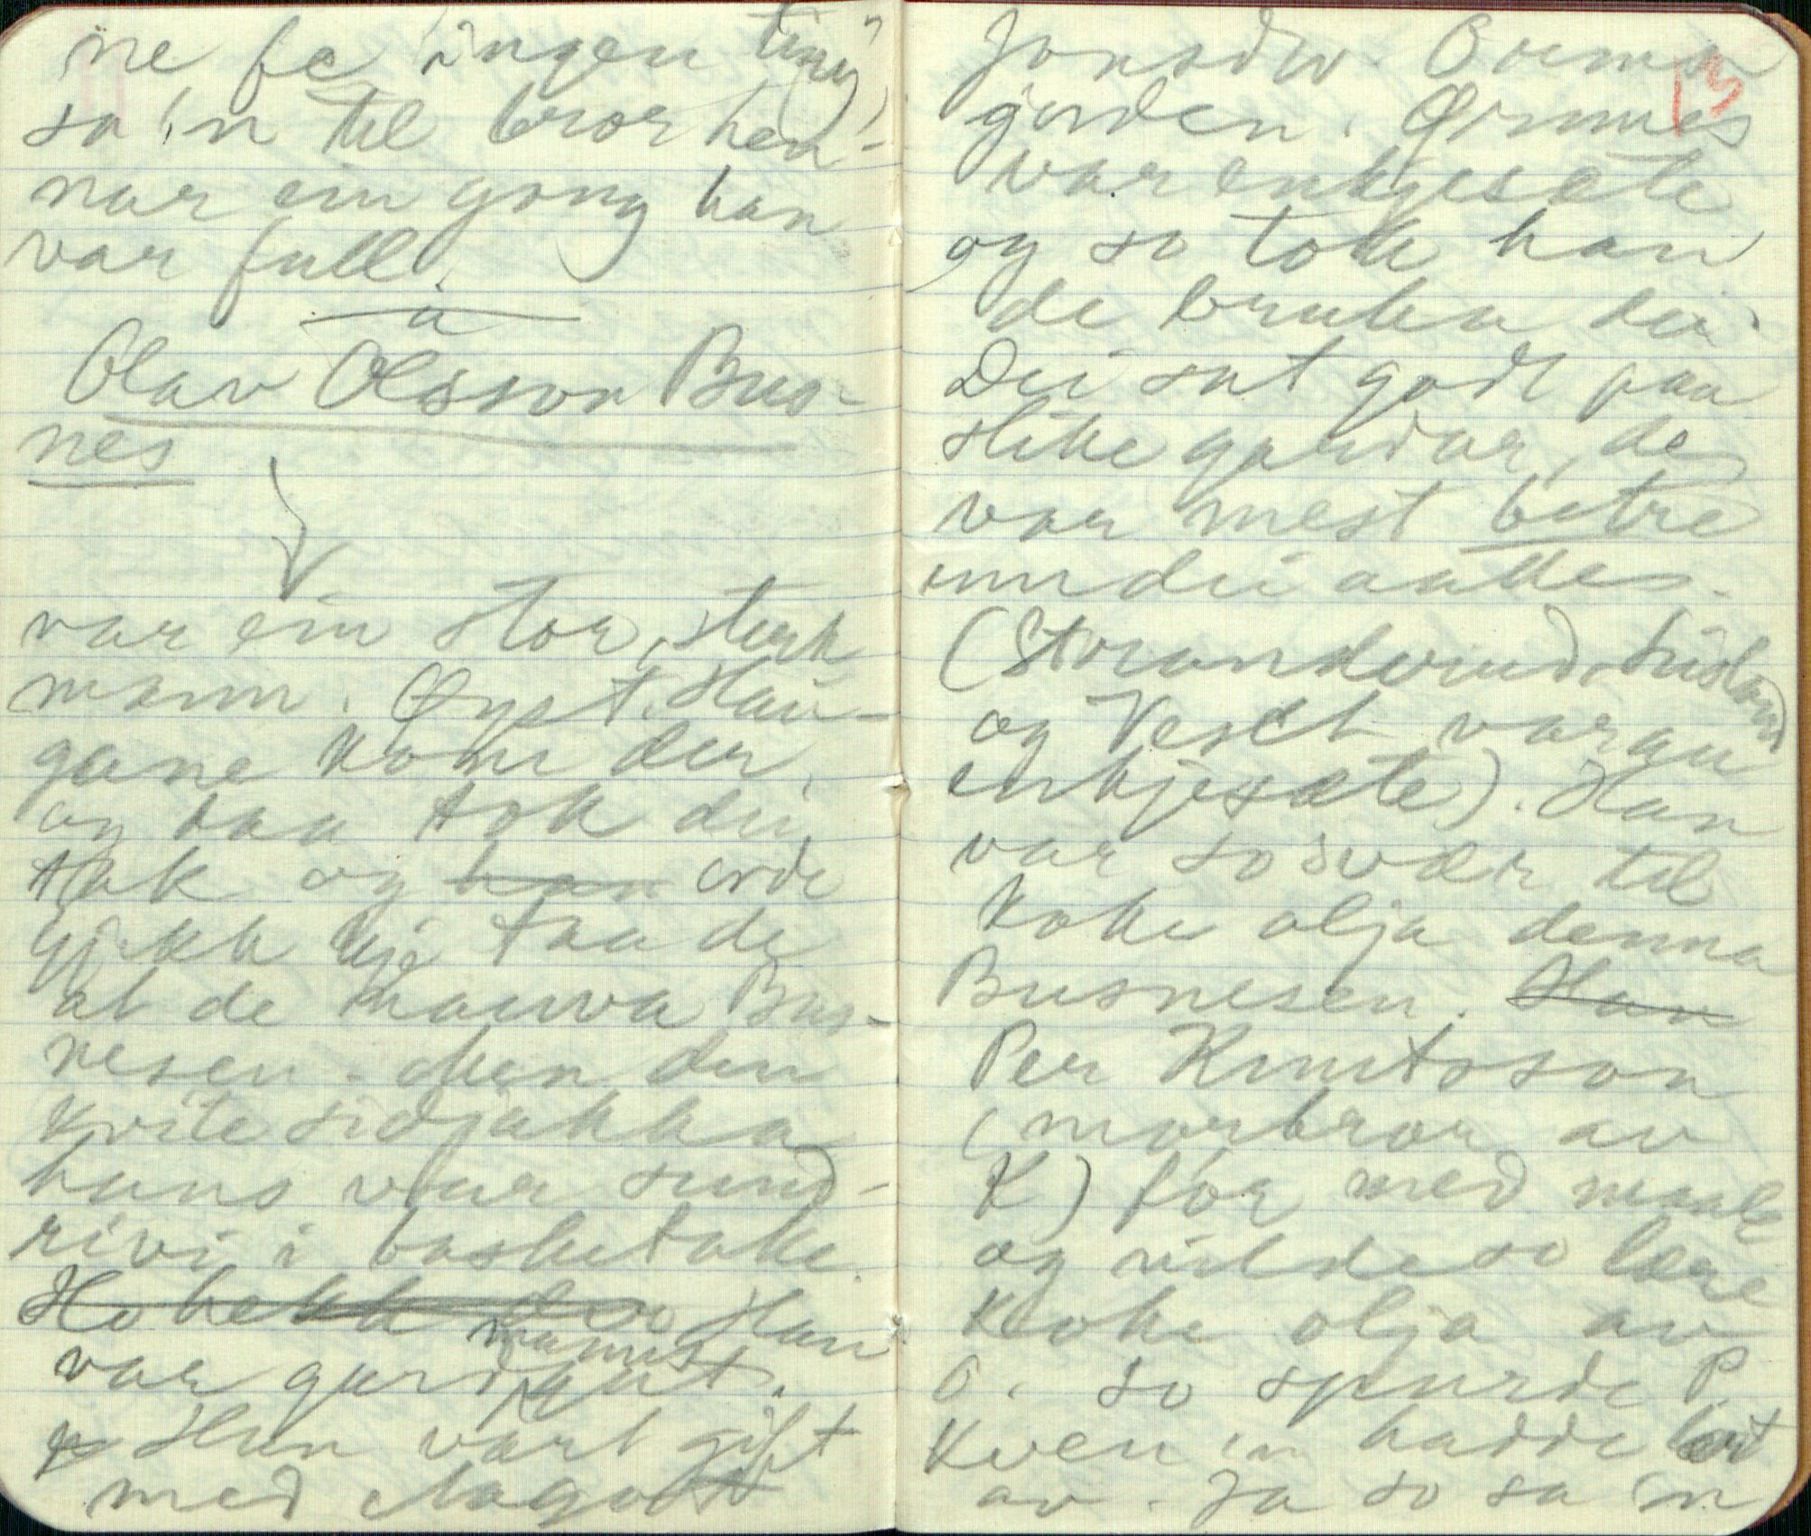 ne fe ingen ting"
sa 'n til bror hen-
nar ein gong han
var full.
a
Olav Olsson Bus-
nes
var ein stor, sterk
mann. Øyst. Hau-
gane kom der,
og daa tok dei
tak og han orde
gjekk kje taa de
at de kauva Bus-
nesen. Men den
kvite sidjakka
hans var sund-
rivi i basketake.
Ho hekk der Han
var gardmannsgut.
Han vart gift
med Aago
13
Jonsdtr. Bøemo
garden. Ørnnes
var enkjesæte
og so tok han
de bruka dei.
Dei sat godt paa
slike gardar, de
var mest betre
enn dei aattes.
(Strondemd, Lisland
og Veset var au
enkjesæte). Han
var so svær til
koke olja denna
Busnesen. Han
Per Knutsson
(morbror av
K) for med maale
og vilde so lære
koke olja av
O. So spurde P.
kven 'n hadde lært
av. Ja so sa 'n